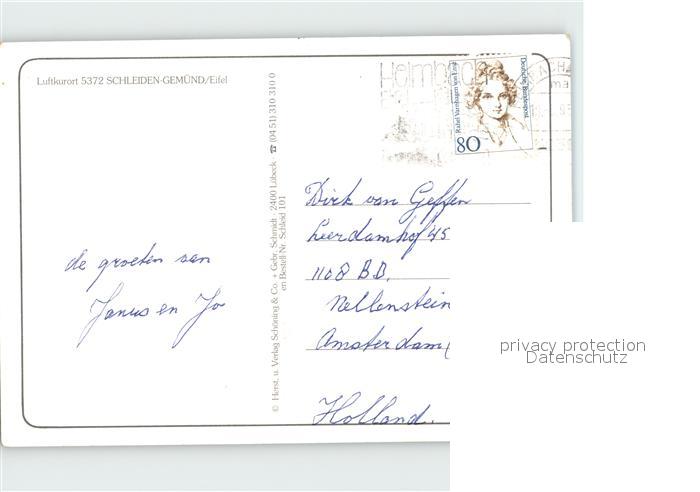 Luftkurort 5372 SCHLEIDEN-GEMÜND/Eifel
de groeten van
Janus en Jo
© Herst. u. Verlag Schöning & Co. + Gebr. Schmidt · 2400 Lübeck · ☎ (04 51) 310 310 0
en Bestell-Nr. Schleid 101
Heimbach
Rahel Varnhagen von Ense
Deutsche Bundespost
80
Dirk van Geffen
Leerdamhof 45
1108 BD.
Nellenstein
Amsterdam
Holland.
privacy protection
Datenschutz